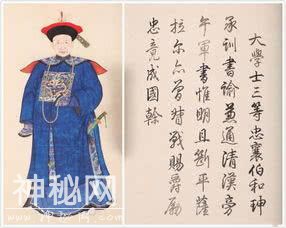 大學士三等忠襄伯和珅
承訓書諭兼通清漢旁
午軍書惟明且斷平薩
拉尔亦曾督戰賜爵勵
忠竟成國幹
神秘网